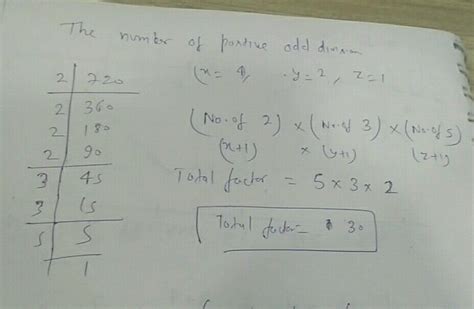 The number of positive odd division
(x = 4, y = 2, z = 1
2 | 720
2 | 360
2 | 180
2 | 90
3 | 45
3 | 15
5 | 5
1
(No. of 2) × (No. of 3) × (No. of 5)
(x+1) × (y+1) (z+1)
Total factor = 5 × 3 × 2
Total factor = 30